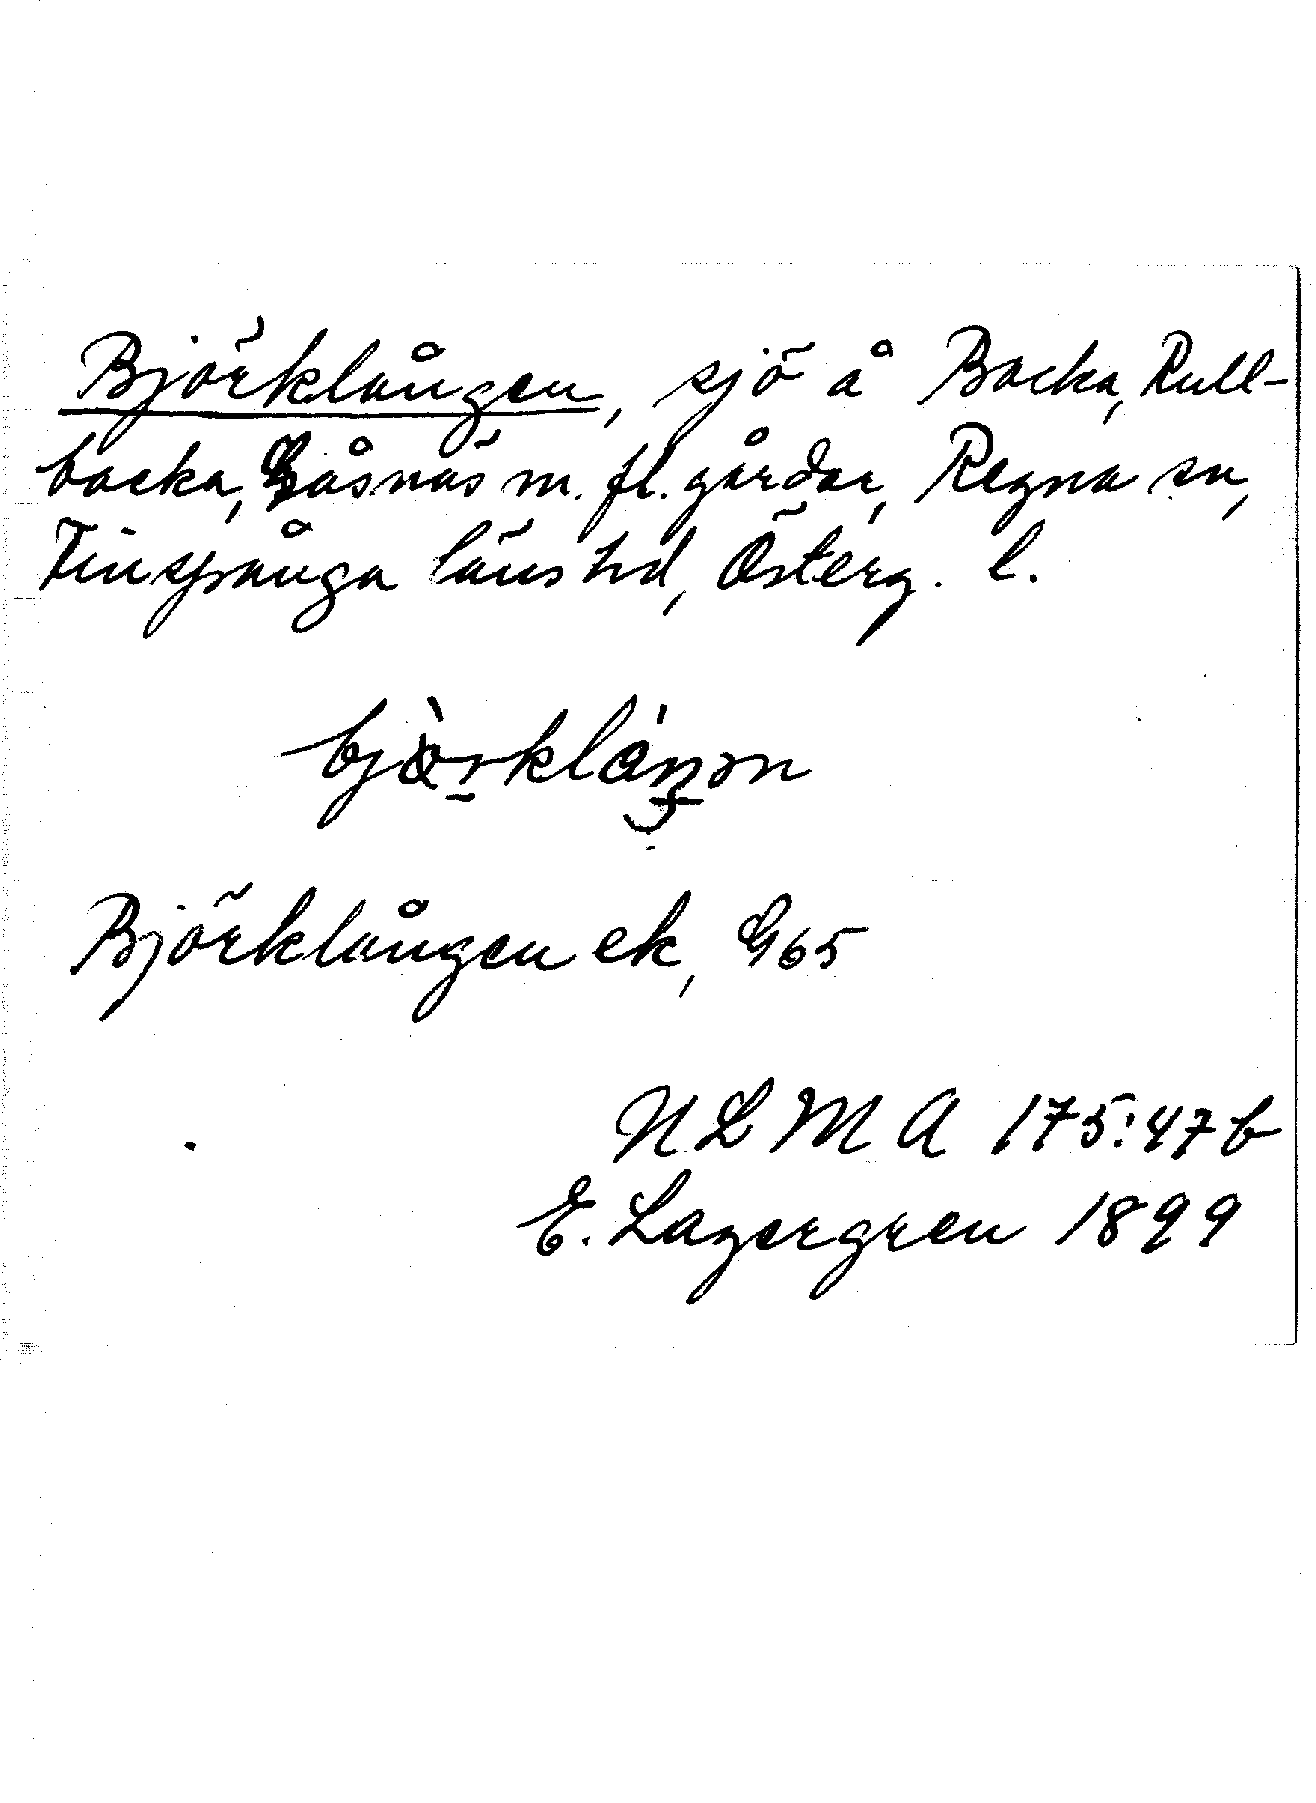 Björklången, sjö å Backa, Rull-
backa, Gåsnäs m. fl. gårdar, Regna sn,
Finspånga läns hd, Österg. l.
Björklången ek, G65
NLM A 175:47b
E. Lagergren 1899